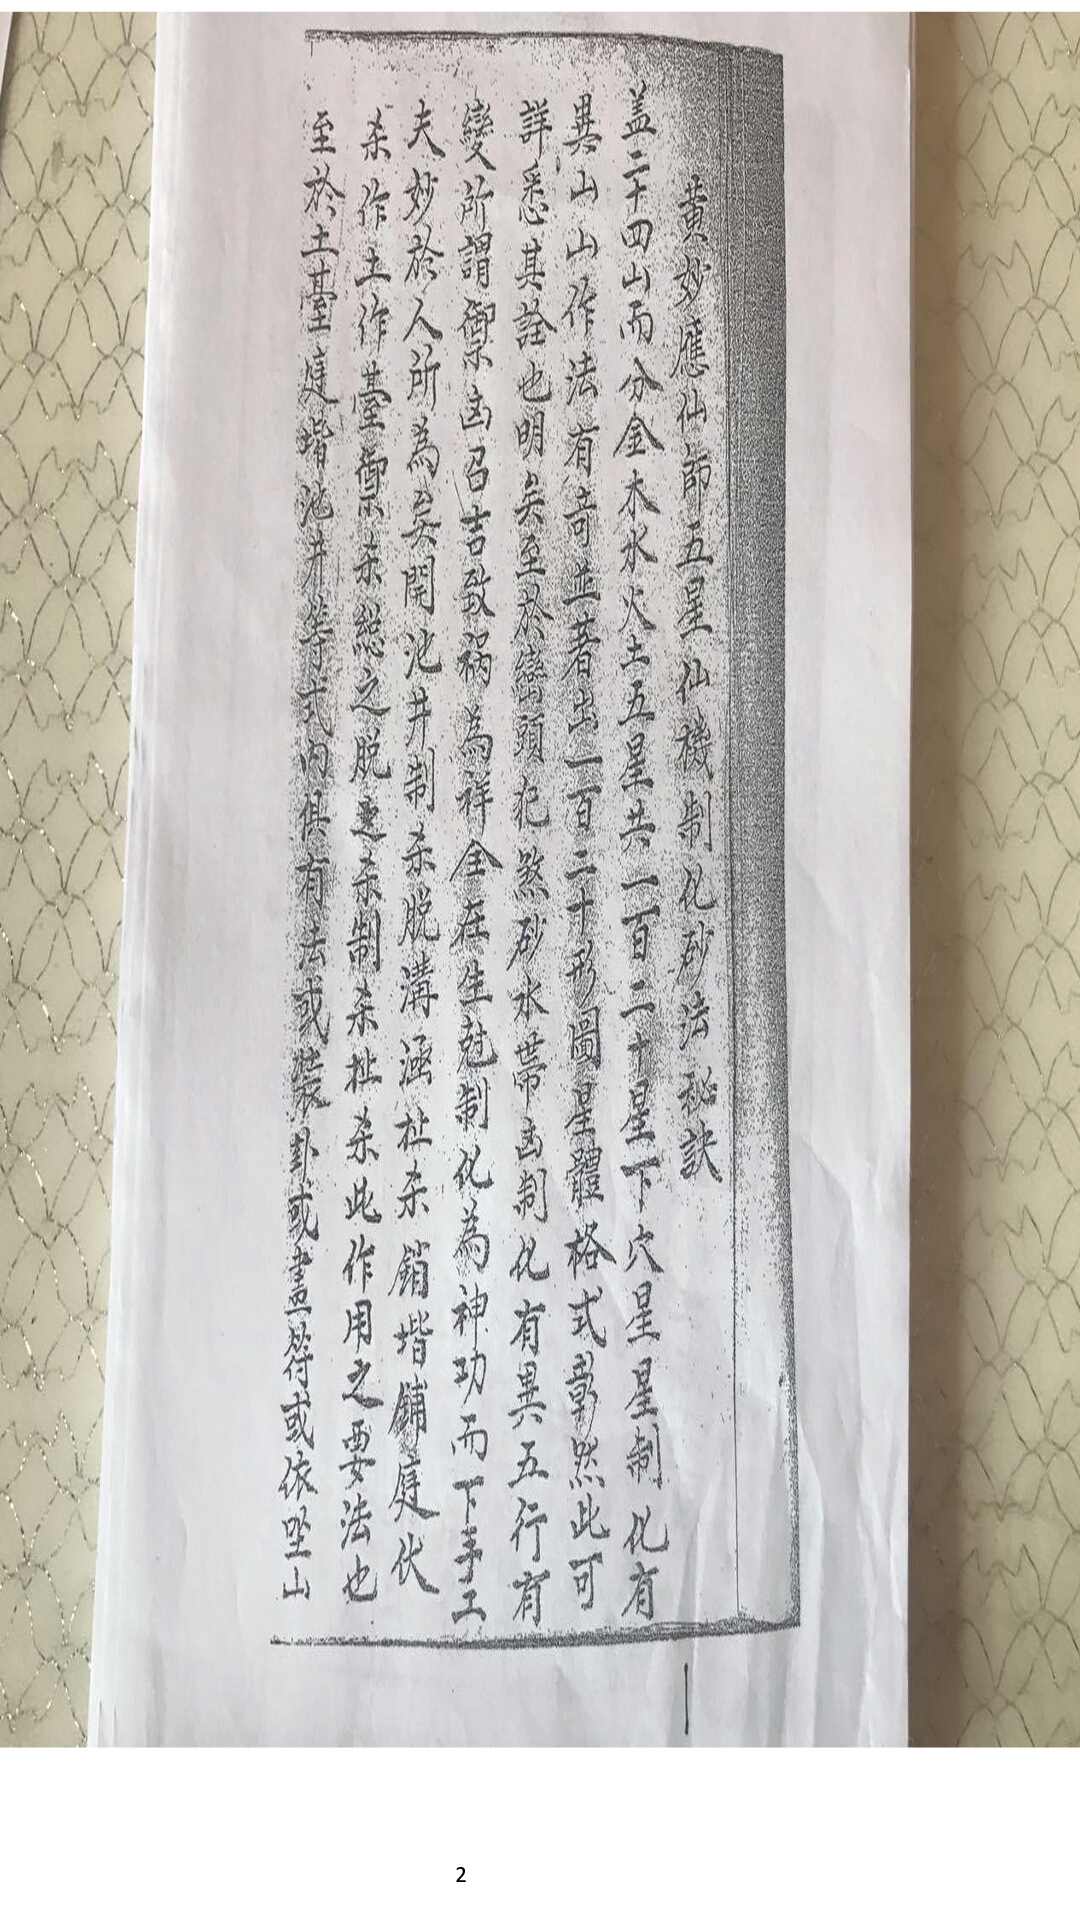 黄妙應仙師五星仙機制化砂法秘訣
盖二十四山而分金木水火土五星共一百二十星下穴星星制化有
異山山作法有竒並著出一百二十形圖星體格式彰然此可
詳悉其詮也明矣至於巒頭犯煞砂水帶凶制化有異五行有
變所謂禦凶召吉致祸為祥全在生尅制化為神功而下手工
夫妙於人所為矣開池井制杀脱溝涵杜杀銷堦鋪庭伏
杀作土作臺禦杀総之脱之杀制杀杜杀此作用之要法也
至於土臺庭堦池井等式内俱有法或裝卦或畫符或依坐山
2